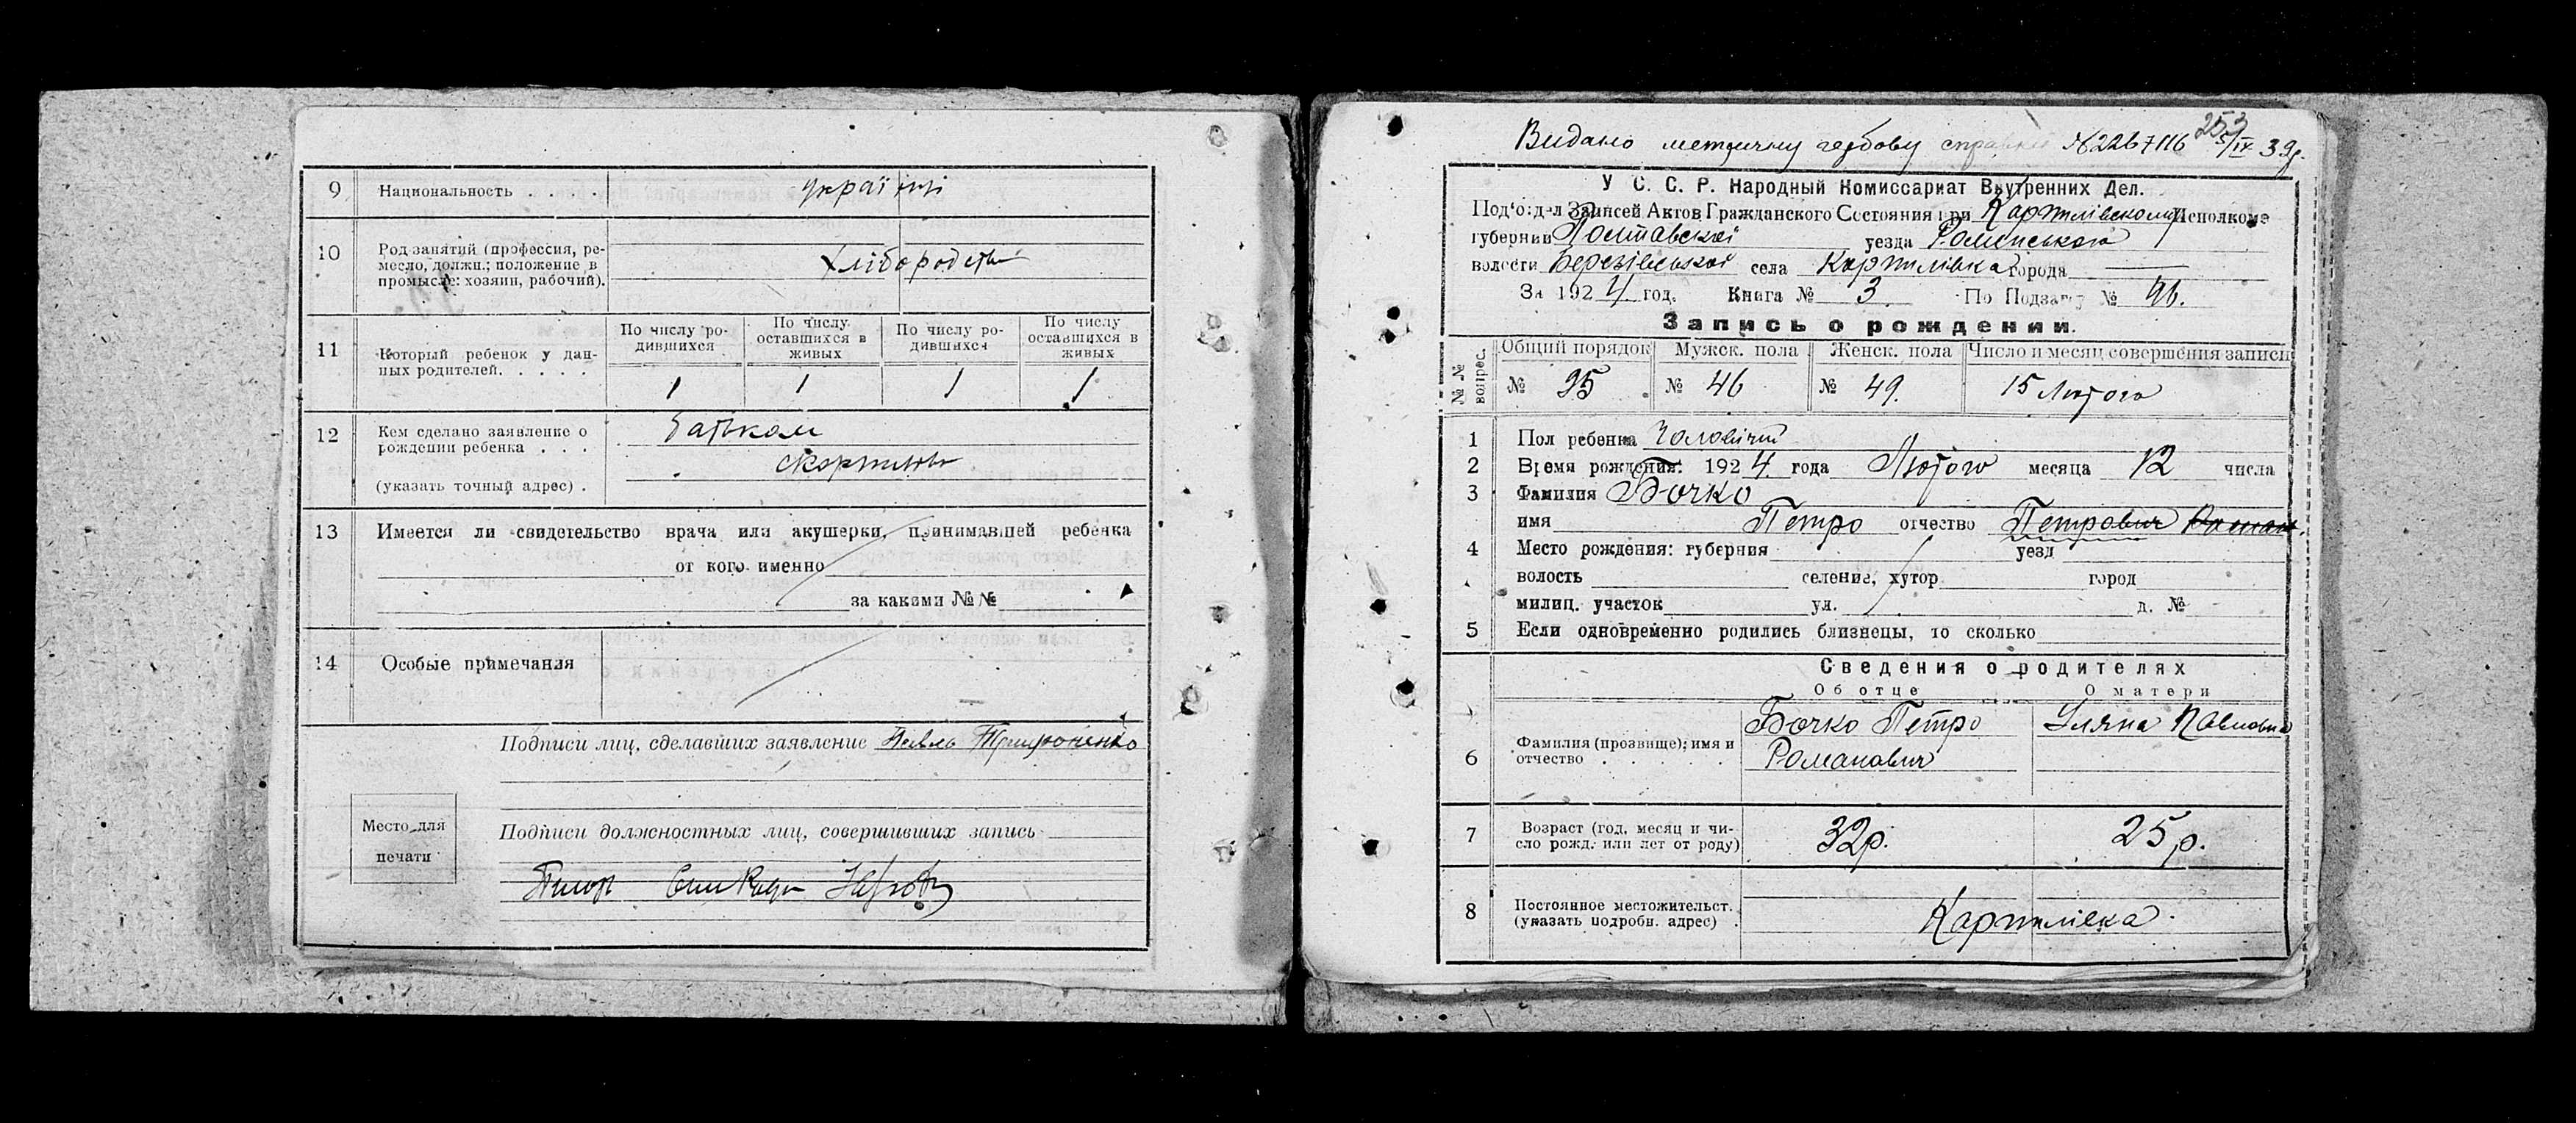 9 Национальность . . . . українці
10 Род занятий (профессия, ре-
месло, должн.; положение в
промысле: хозяин, рабочий).
11 Который ребенок у дан-
ных родителей. . . . .
По числу ро-
дившихся
По числу
оставшихся в
живых
По числу ро-
дившихся
По числу
оставшихся в
живых
1 1 1 1
12 Кем сделано заявление о
рождении ребенка . . .
(указать точный адрес) .
батьком
13 Имеется ли свидетельство врача или акушерки, принимавшей ребенка
от кого именно
за какими № №
14 Особые примечания
Подписи лиц, сделавших заявление
Подписи должностных лиц, совершивших запись
Место для
печати
Видано метричну гербову № 2267116 5/IX 39р.
253
У С. С. Р. Народный Комиссариат Внутренних Дел.
Под'отдел Записей Актов Гражданского Состояния при Исполкоме
губернии Полтавскої уезда Роменського
волости села города
За 1924 год. Книга № 3. По Подзагу № 96.
Запись о рождении.
№ №
вопрос.
Общий порядок Мужск. пола Женск. пола Число и месяц совершения записи
№ 95 № 46 № 49. 15 Лютого
1 Пол ребенка Чоловічий
2 Время рождения: 1924. года Лютого месяца 12 числа
3 Фамилия Бочко
имя Петро отчество Петрович Роман
4 Место рождения: губерния уезд
волость селение, хутор город
милиц. участок ул. д. №
5 Если одновременно родились близнецы, то сколько
Сведения о родителях
Об отце О матери
6 Фамилия (прозвище); имя и
отчество . . . . .
Бочко Петро
Романович
Уляна Павловна
7 Возраст (год, месяц и чи-
сло рожд. или лет от роду)
32р. 25р.
8 Постоянное местожительст.
(указать подробн. адрес) .